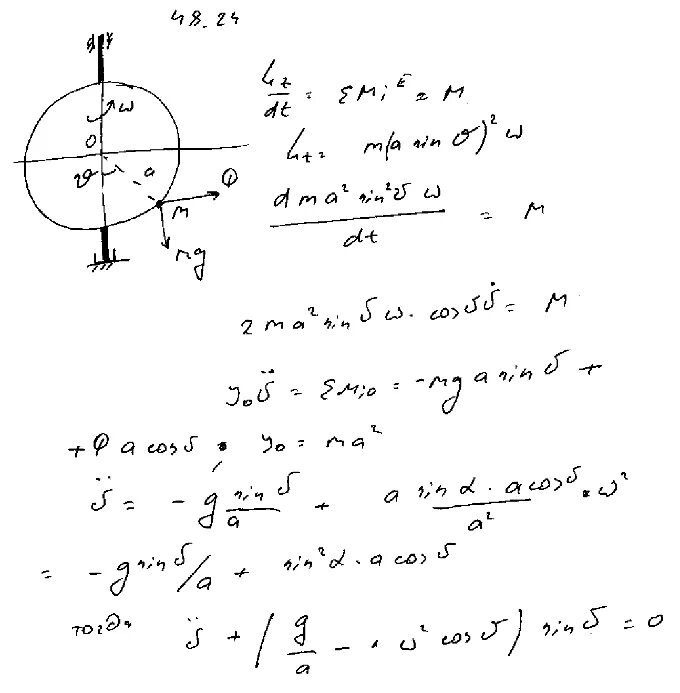 48.24
ω
O
ϑ
a
M
Φ
mg
Lz/dt = ΣMi^E = M
Lz = m(a sin ϑ)² ω
d m a² sin²ϑ ω / dt = M
2 m a² sin ϑ ω · cos ϑ ϑ̇ = M
J₀ ϑ̈ = ΣMi₀ = -mg a sin ϑ +
+ Φ a cos ϑ ; J₀ = ma²
ϑ̈ = - g sin ϑ / a + a sin α · a cos ϑ / a² · ω²
= - g sin ϑ / a + sin² α · a cos ϑ
тогда ϑ̈ + ( g / a - · ω² cos ϑ ) sin ϑ = 0